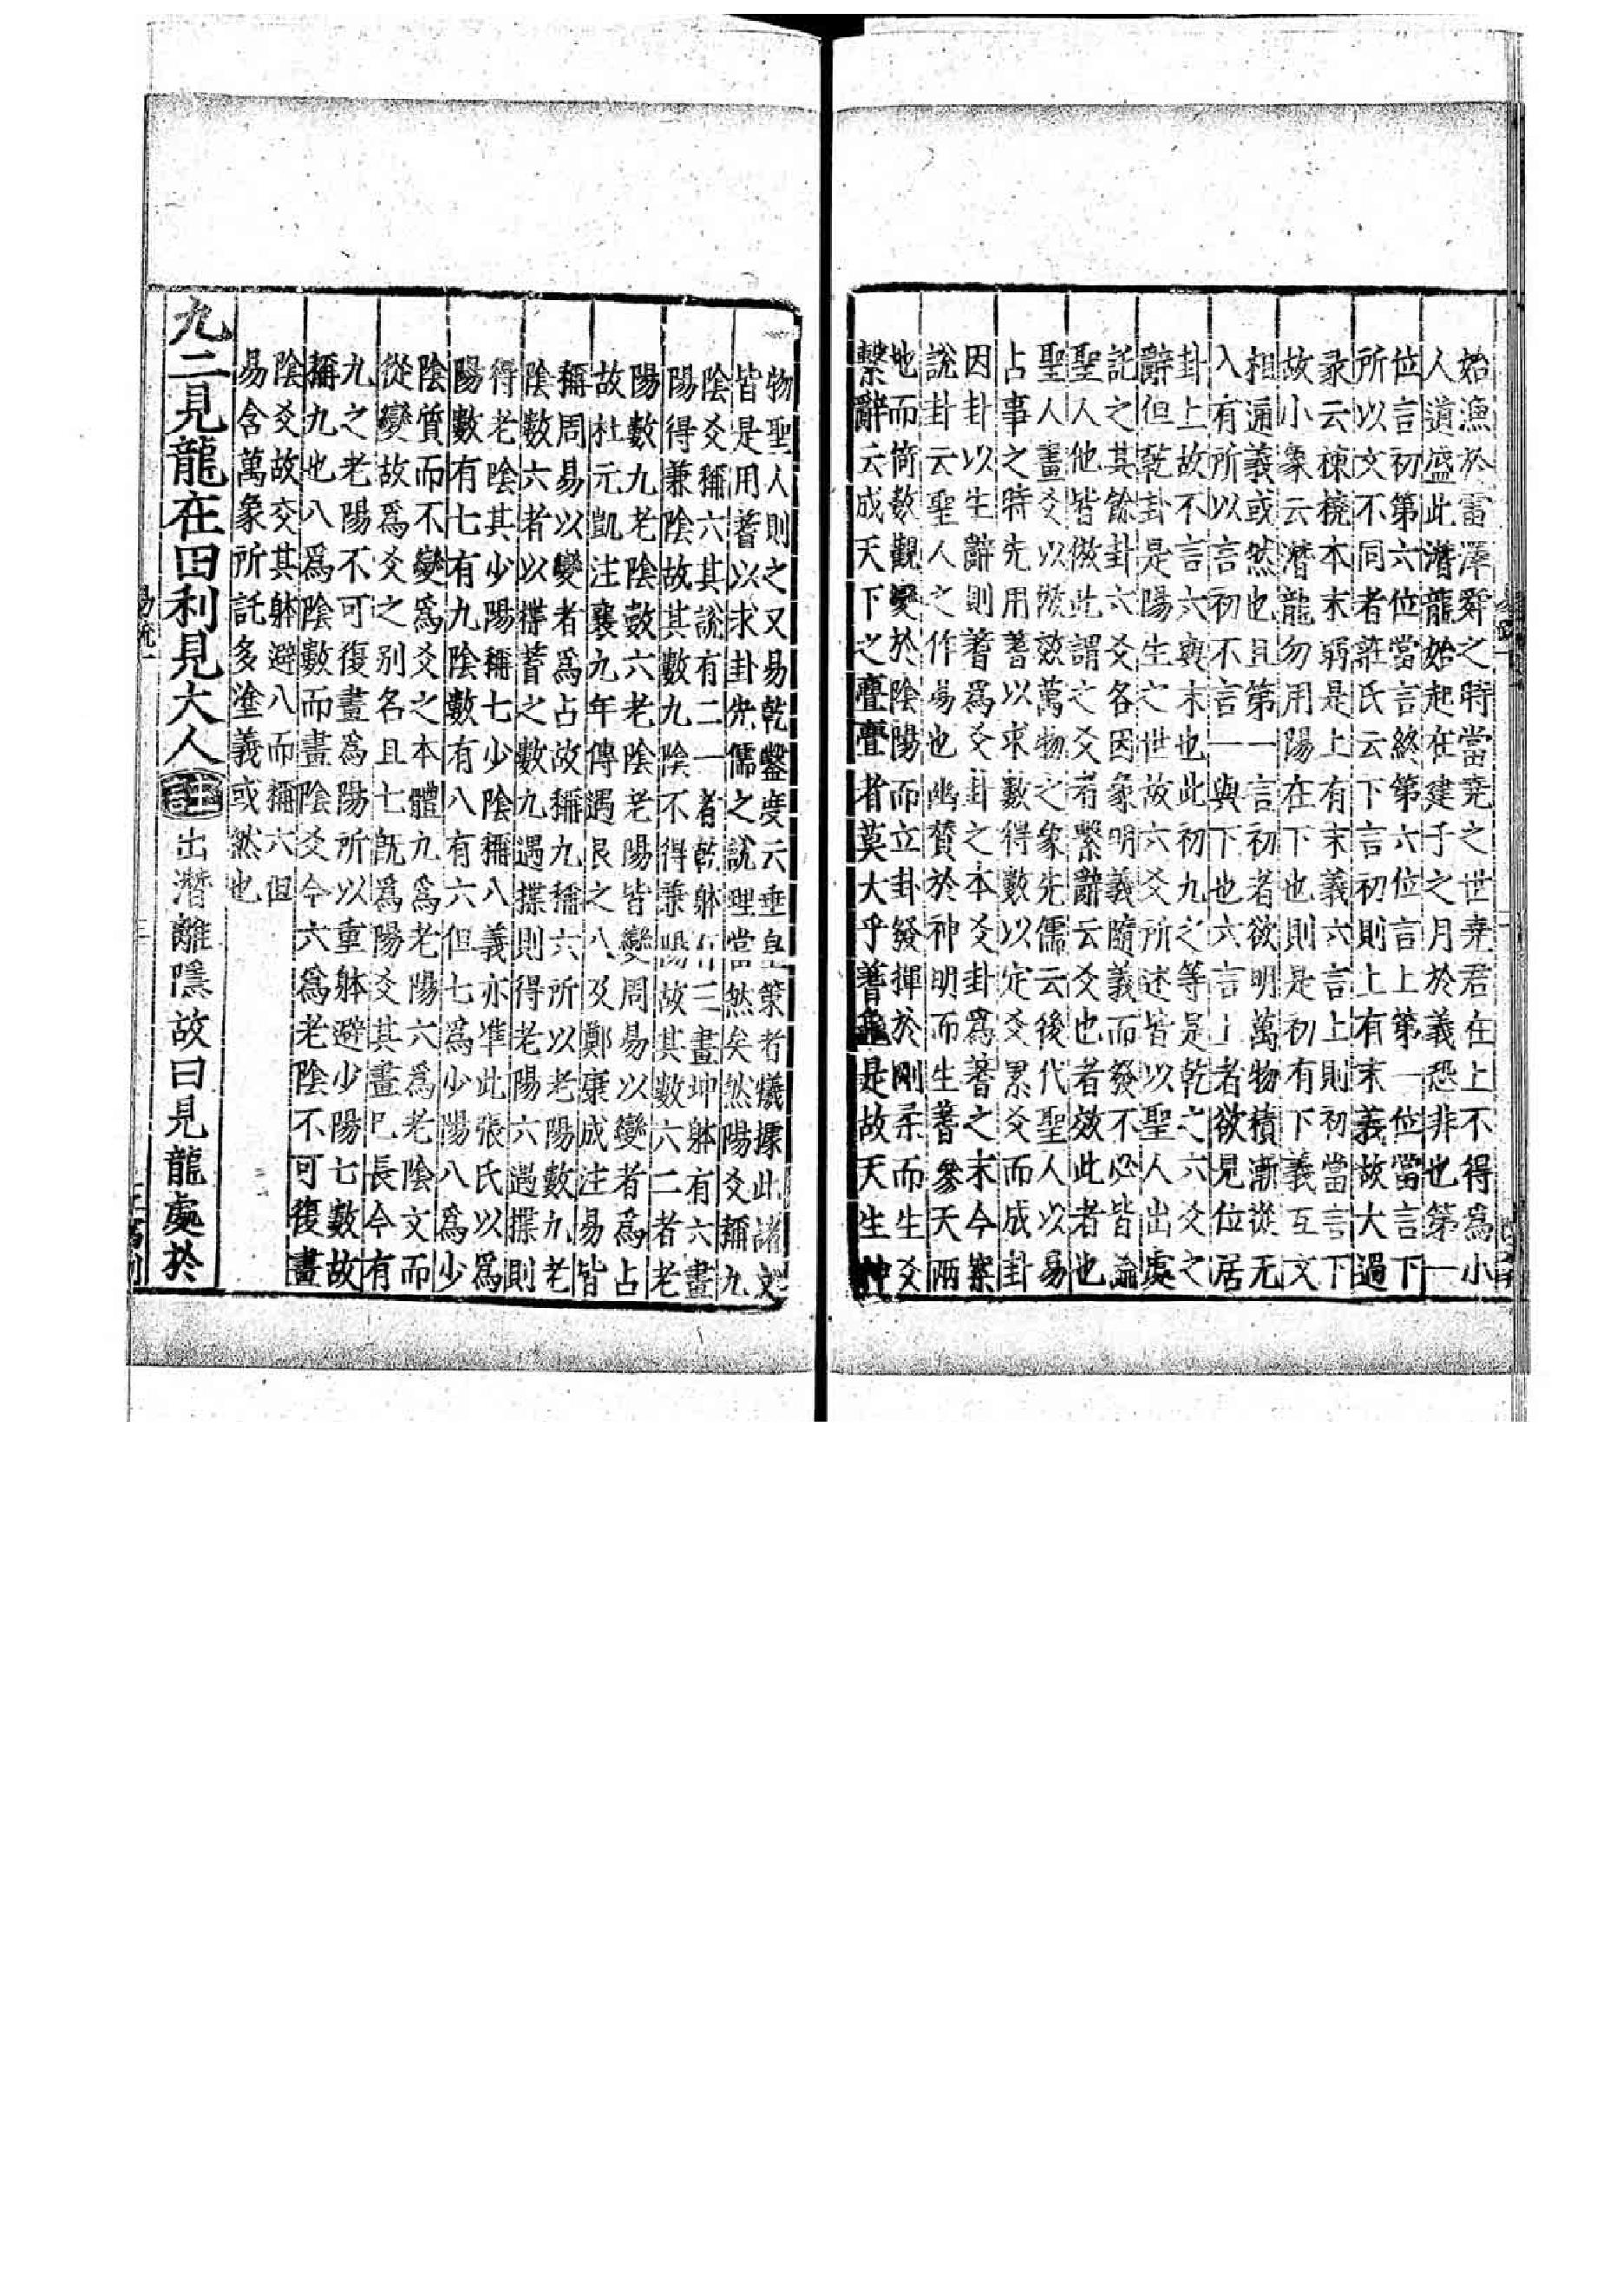 始漁於雷澤舜之時當堯之世堯君在上不得為小
人道盛此潛龍始起在建子之月於義恐非也第一
位言初第六位當言終第六位言上第一位當言下
所以文不同者莊氏云下言初則上有末義故大過
彖云棟橈本末弱是上有末義六言上則初當言下
故小象云潛龍勿用陽在下也則是初有下義互文
相通義或然也且第一言初者欲明萬物積漸從无
入有所以言初不言一與下也六言上者欲見位居
卦上故不言六與末也此初九之等是乾之六爻之
辭但乾卦是陽生之世故六爻所述皆以聖人出處
託之其餘卦六爻各因象明義隨義而發不必皆論
聖人他皆倣此謂之爻者繫辭云爻也者效此者也
聖人畫爻以倣效萬物之象先儒云後代聖人以易
占事之時先用蓍以求數得數以定爻累爻而成卦
因卦以生辭則蓍為爻卦之本爻卦為蓍之末今案
說卦云聖人之作易也幽贊於神明而生蓍參天兩
地而倚數觀變於陰陽而立卦發揮於剛柔而生爻
繫辭云成天下之亹亹者莫大乎蓍龜是故天生神
物聖人則之又易乾鑿度云垂皇策者犧據此諸文
皆是用蓍以求卦先儒之說理當然矣然陽爻稱九
陰爻稱六其說有二一者乾體有三畫坤體有六畫
陽得兼陰故其數九陰不得兼陽故其數六二者老
陽數九老陰數六老陰老陽皆變周易以變者為占
故杜元凱注襄九年傳遇艮之八及鄭康成注易皆
稱周易以變者為占故稱九稱六所以老陽數九老
陰數六者以揲蓍之數九遇揲則得老陽六遇揲則
得老陰其少陽稱七少陰稱八義亦準此張氏以為
陽數有七有九陰數有八有六但七為少陽八為少
陰質而不變為爻之本體九為老陽六為老陰文而
從變故為爻之別名且七既為陽爻其畫已長今有
九之老陽不可復畫為陽所以重體避少陽七數故
稱九也八為陰數而畫陰爻今六為老陰不可復畫
陰爻故交其體避八而稱六但
易含萬象所託多塗義或然也
九二見龍在田利見大人 注 出潛離隱故曰見龍處於